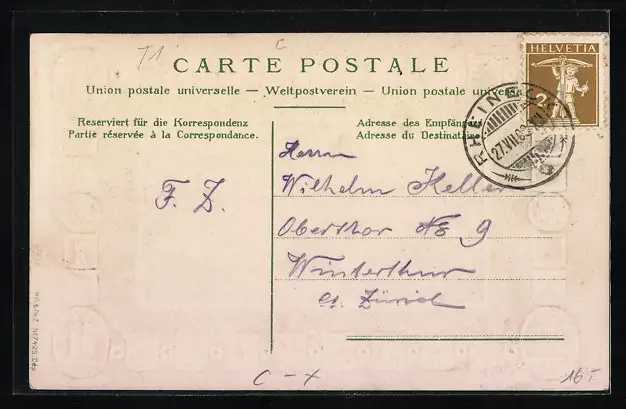 T1
C
CARTE POSTALE
Union postale universelle — Weltpostverein — Union postale universelle
HELVETIA
2
RHEINECK
27.VII.
Reserviert für die Korrespondenz
Partie réservée à la Correspondance.
Adresse des Empfängers
Adresse du Destinataire
F. Z.
Herrn
Wilhelm Keller
Oberthor No 9
Winterthur
Ct. Zürich
C - x
16.-